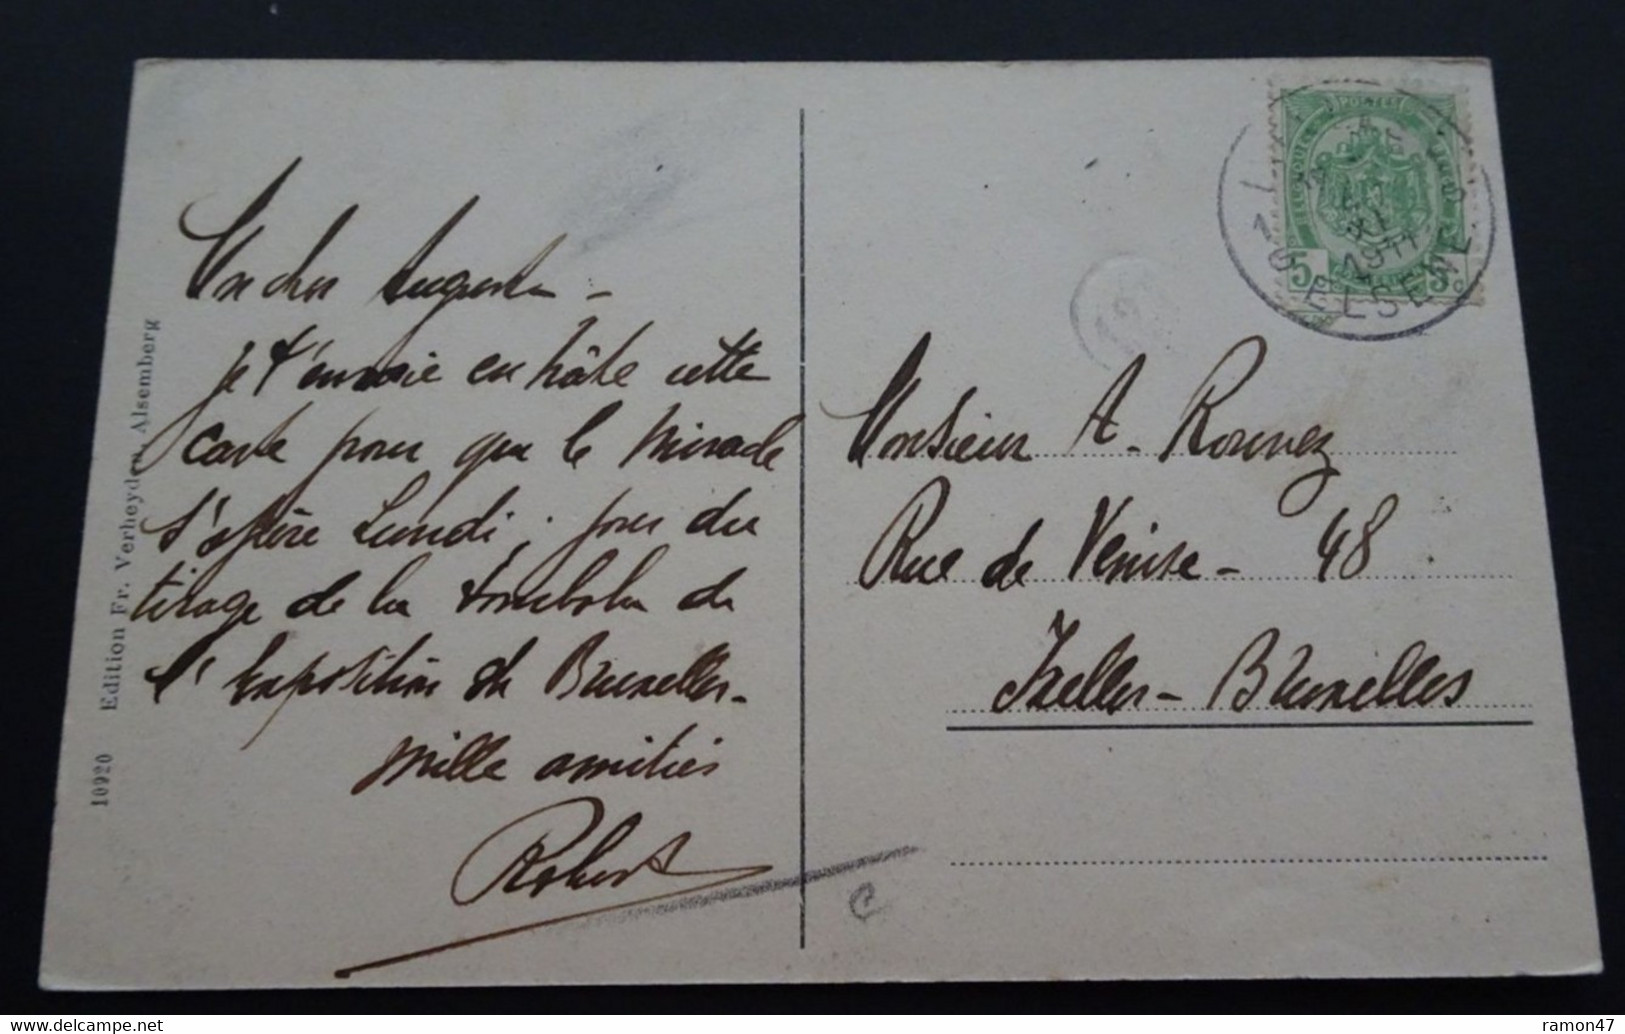 Mon cher Auguste -
je t'envoie en hâte cette
carte pour que le Miracle
s'opère Lundi, jour du
tirage de la tombola de
l'Exposition de Bruxelles -
Mille amitiés
Robert
10920 Edition Fr. Verheyden, Alsemberg
POSTES
5 5c
1911
ELSENE
Monsieur A. Rouvez
Rue de Venise - 48
Ixelles - Bruxelles
delcampe.net
ramon47